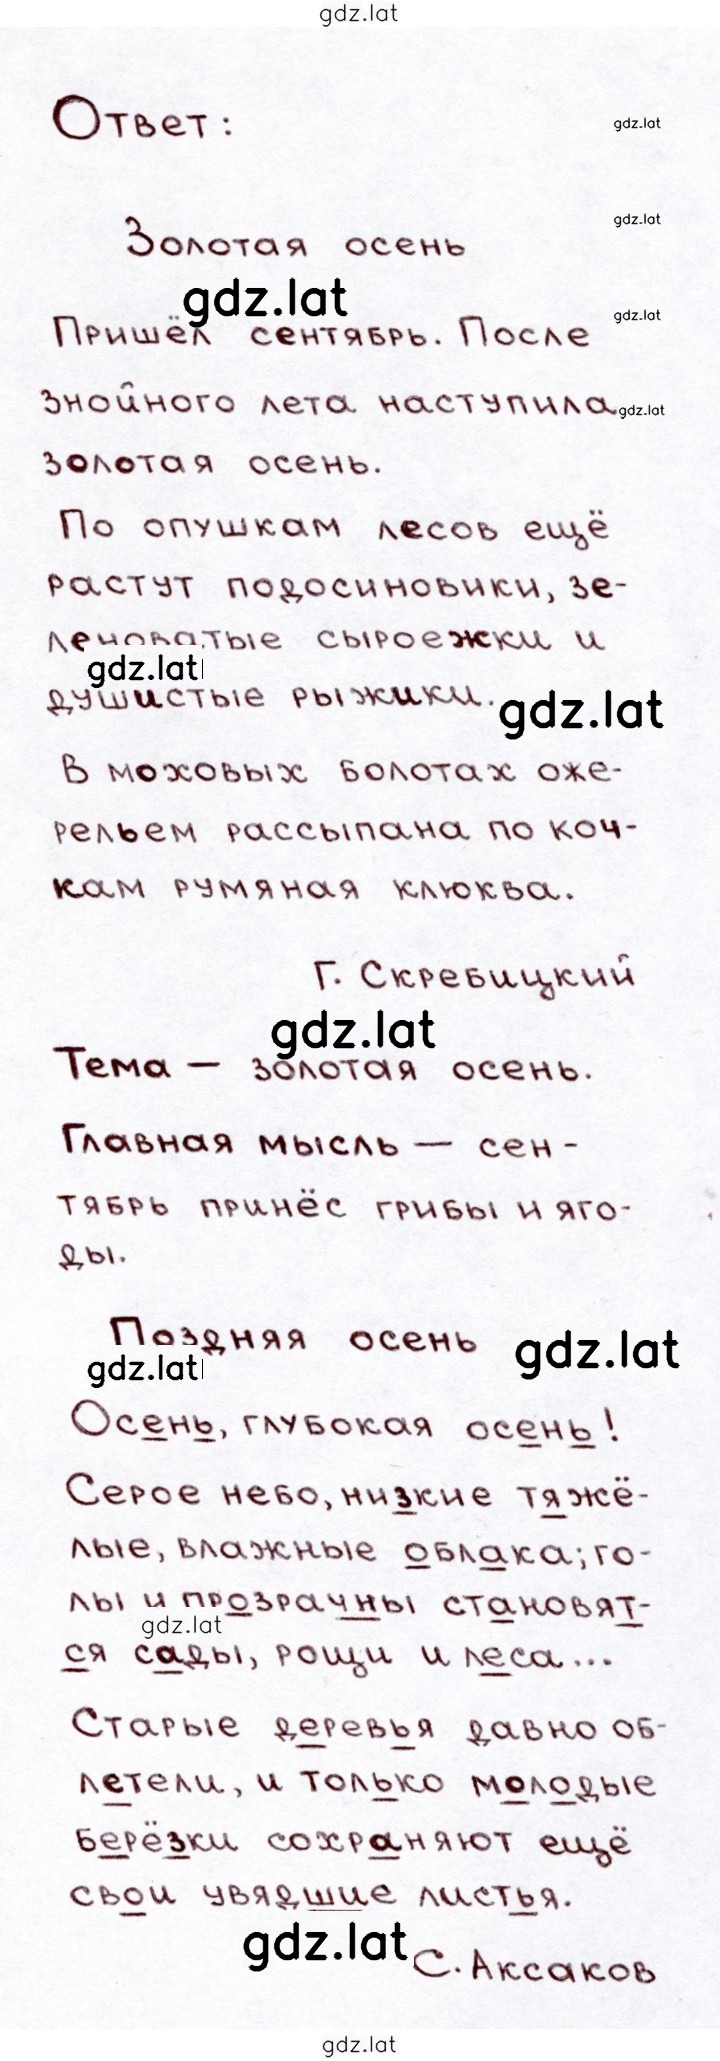 gdz.lat
Ответ:
gdz.lat
gdz.lat
Золотая осень
gdz.lat
gdz.lat
Пришёл сентябрь. После
знойного лета наступила
gdz.lat
золотая осень.
По опушкам лесов ещё
растут подосиновики, зе-
леноватые сыроежки и
gdz.lat
душистые рыжики.
gdz.lat
В моховых болотах оже-
рельем рассыпана по коч-
кам румяная клюква.
Г. Скребицкий
gdz.lat
Тема — золотая осень.
Главная мысль — сен-
тябрь принёс грибы и яго-
ды.
Поздняя осень
gdz.lat
gdz.lat
Осень, глубокая осень!
Серое небо, низкие тяжё-
лые, влажные облака; го-
лы и прозрачны становят-
gdz.lat
ся сады, рощи и леса...
Старые деревья давно об-
летели, и только молодые
берёзки сохраняют ещё
свои увядшие листья.
gdz.lat
С. Аксаков
gdz.lat